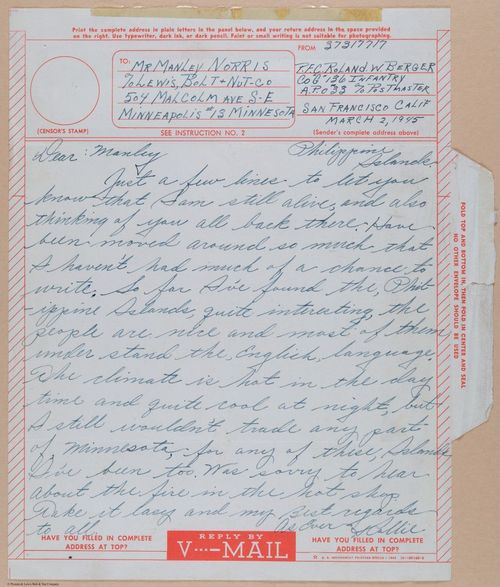 Print the complete address in plain letters in the panel below, and your return address in the space provided
on the right. Use typewriter, dark ink, or dark pencil. Faint or small writing is not suitable for photographing.
FROM
37317717
TO:
MR MANLEY NORRIS
℅ LEWIS, BOLT & NUT-CO
504 MALCOLM AVE S-E
MINNEAPOLIS #13 MINNESOTA
P.F.C. ROLAND W BERGER
CO G 136 INFANTRY
A.P.O 33 ℅ POSTMASTER
SAN FRANCISCO CALIF
MARCH 2, 1945
(CENSOR'S STAMP)
SEE INSTRUCTION NO. 2
(Sender's complete address above)
Philippine
Islands.
Dear: Manley
Just a few lines to let you
know that I am still alive, and also
thinking of you all back there. Have
been moved around so much that
I haven't had much of a chance to
write. So far I've found the, Phil-
ippine Islands, quite interesting, the
people are nice and most of them
under stand the, English, language,
The climate is hot in the day
time and quite cool at night, but
I still wouldn't trade any part
of, Minnesota, for any of these, Islands
I've been too. Was sorry to hear
about the fire in the hot shop.
Take it easy and my best regards
to all.
As Ever
Rollie
HAVE YOU FILLED IN COMPLETE
ADDRESS AT TOP?
REPLY BY
V···—MAIL
HAVE YOU FILLED IN COMPLETE
ADDRESS AT TOP?
FOLD TOP AND BOTTOM IN, THEN FOLD IN CENTER AND SEAL
NO OTHER ENVELOPE SHOULD BE USED